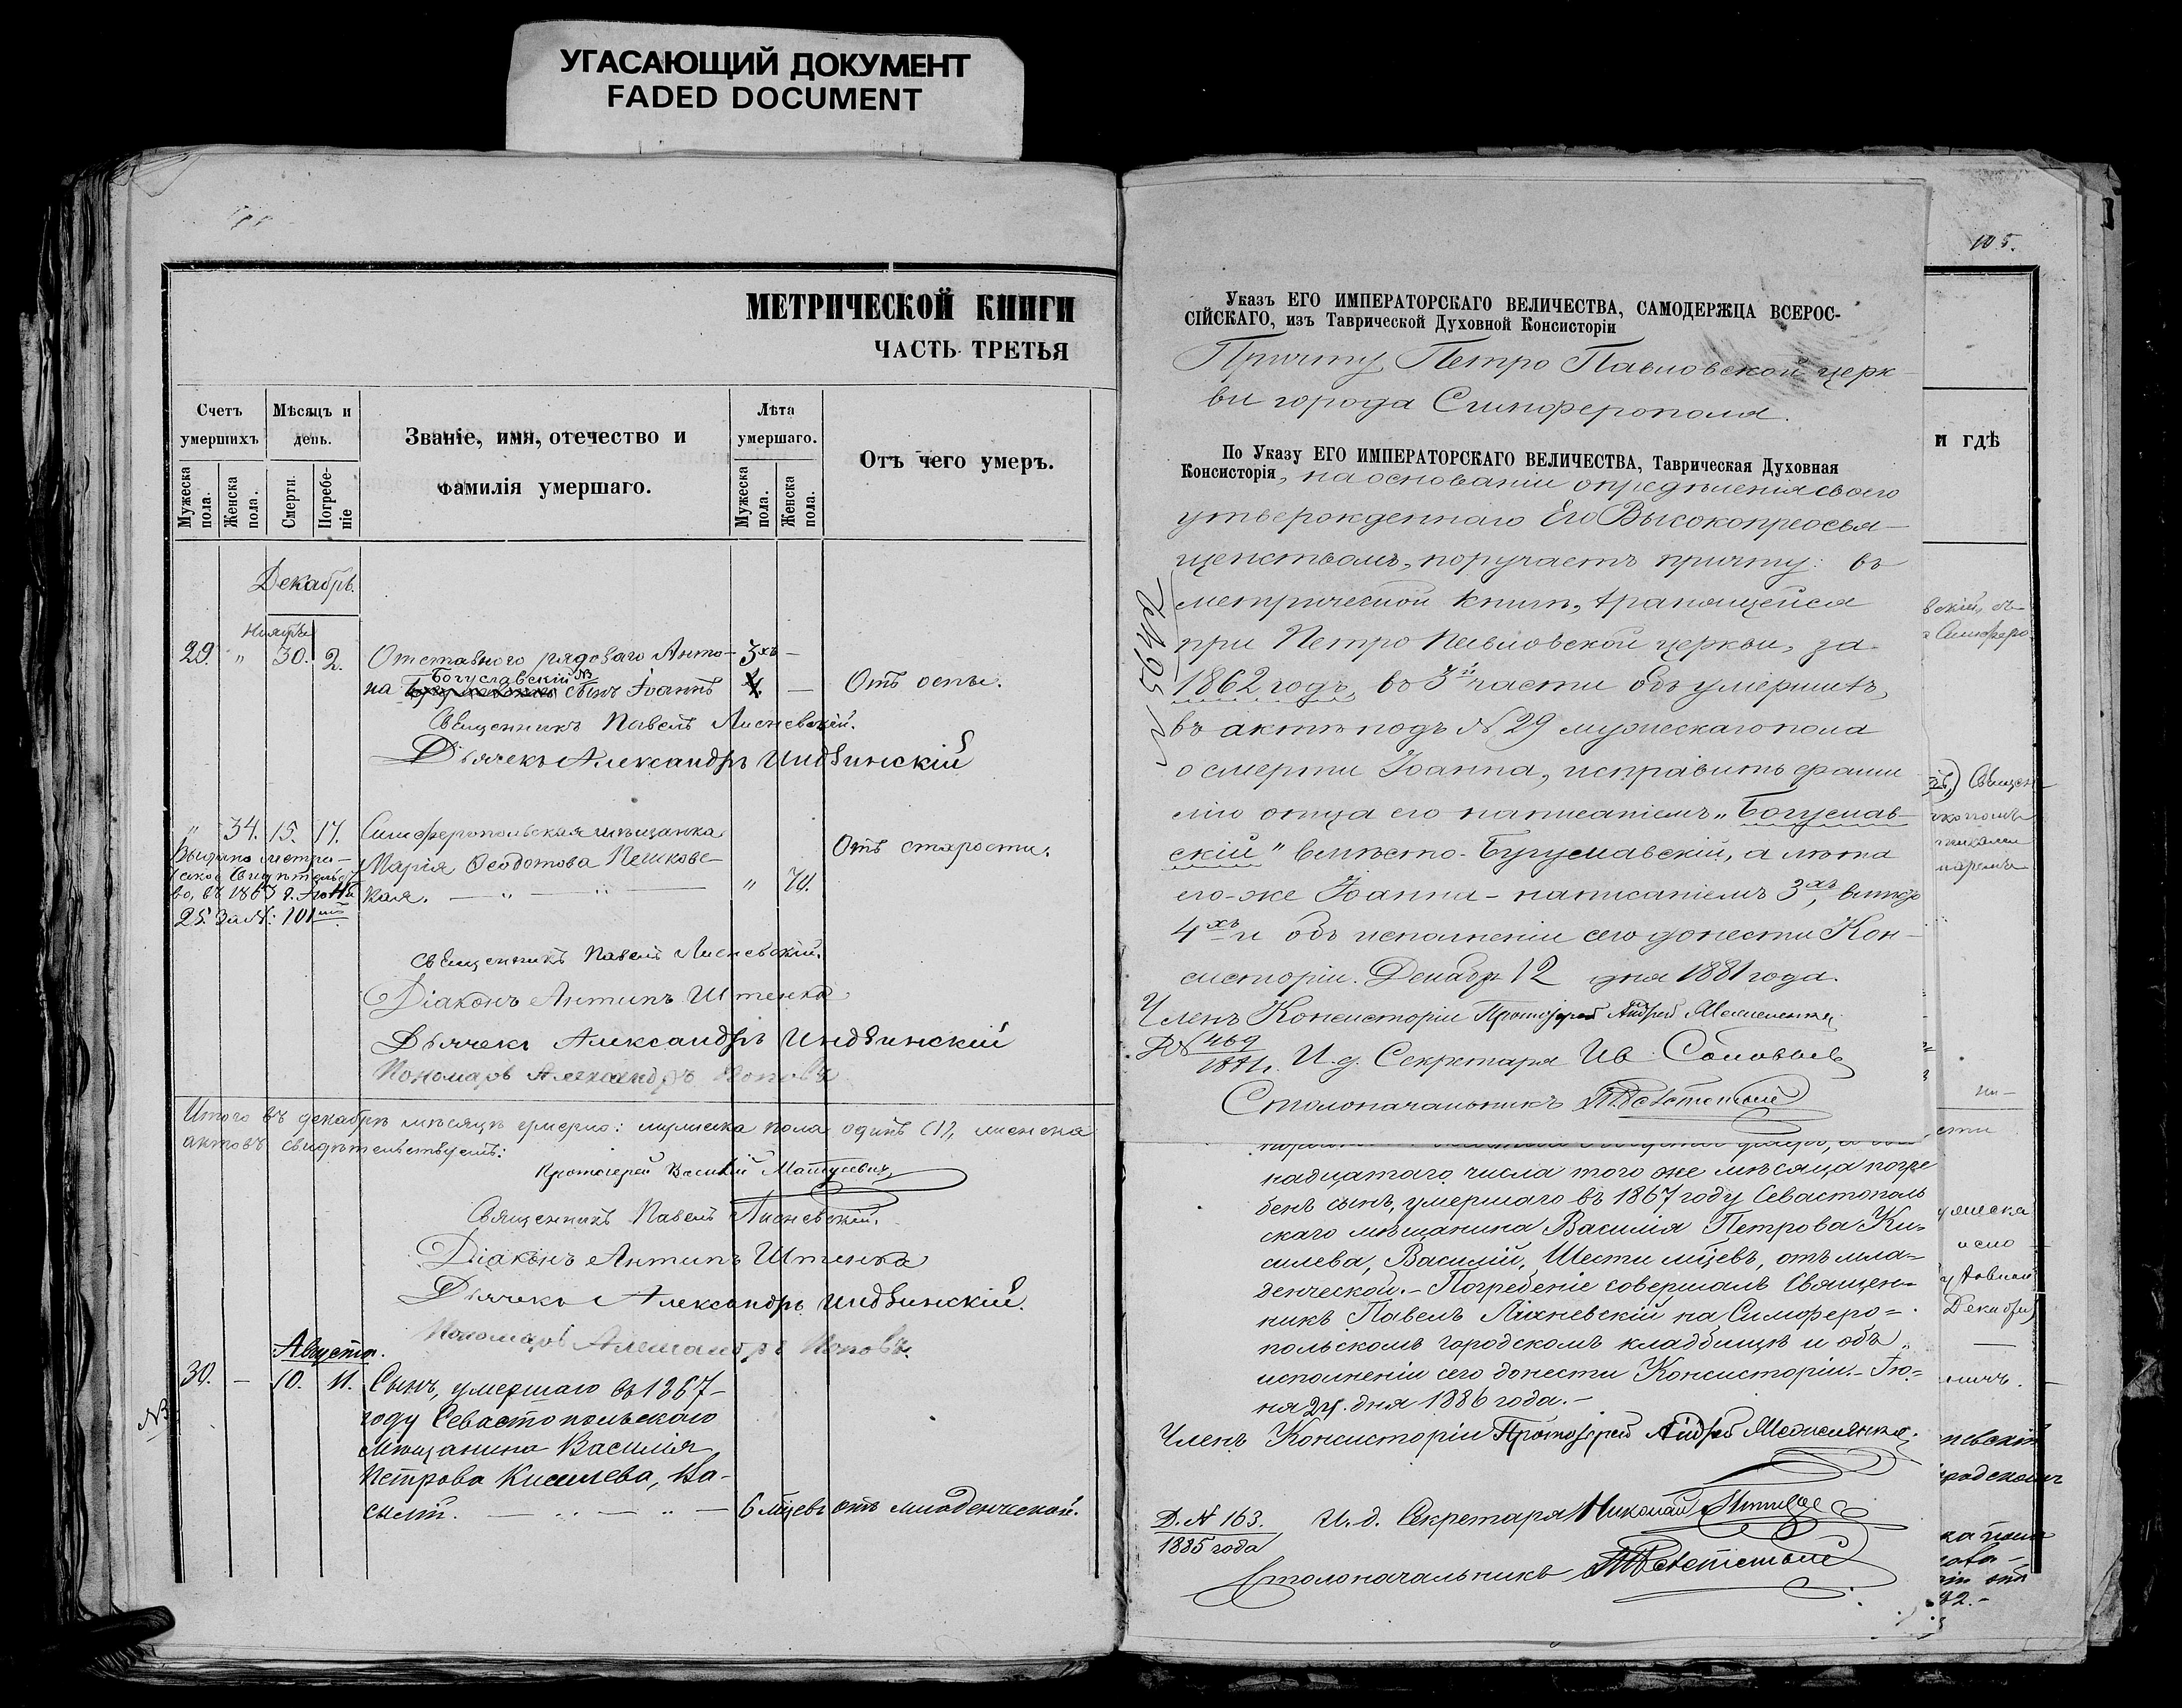 УГАСАЮЩИЙ ДОКУМЕНТ
FADED DOCUMENT
МЕТРИЧЕСКОЙ КНИГИ
ЧАСТЬ ТРЕТЬЯ
Счетъ умершихъ
Мѣсяцъ и день.
Званіе, имя, отечество и фамилія умершаго.
Лѣта умершаго.
Отъ чего умеръ.
Мужеска пола.
Женска пола.
Смерти.
Погребеніе
Мужеска пола.
Женска пола.
Декабрь.
Ноября
29. " 30. 2. Отставного рядоваго Анто- 3хъ —
Богуславскій
на сынъ Іоаннъ 4. — Отъ оспы.
Священникъ Павелъ Лисневскій.
Дьячекъ Александръ Индзинскій
" 34. 15. 17. Симферопольская мѣщанка
Марія Ѳеодотова Пешковс- Отъ старости.
кая. " 70.
Выдано метри-
ское свидѣтельст
во, въ 1863 г. Іюня
25. За №: 101мъ
Священникъ Павелъ Лисневскій.
Діаконъ Антипъ Штенко
Дьячекъ Александръ Индзинскій
Пономарь Александръ Поповъ
Итого въ декабрѣ мѣсяцѣ умерло: мужеска пола одинъ (1), женска
актовъ свидѣтельствуемъ:
Протоіерей Василій Матусевичъ
Священникъ Павелъ Лисневскій.
Діаконъ Антипъ Штенко
Дьячекъ Александръ Индзинскій.
Пономарь Александръ Поповъ.
Августа.
30. — 10. 11. Сынъ, умершаго въ 1867-
году Севастопольскаго
мѣщанина Василія
Петрова Киселева, Ва-
силій. 6 мцевъ отъ младенческой.
105.
Указъ ЕГО ИМПЕРАТОРСКАГО ВЕЛИЧЕСТВА, САМОДЕРЖЦА ВСЕРОС-
СІЙСКАГО, изъ Таврической Духовной Консисторіи
Причту Петро Павловской церк-
ви города Симферополя.
По Указу ЕГО ИМПЕРАТОРСКАГО ВЕЛИЧЕСТВА, Таврическая Духовная
Консисторія, на основаніи опредѣленія своего
утвержденнаго Его Высокопреосвя-
щенствомъ, поручаетъ причту: въ
метрической книгѣ, хранящейся
при Петро Павловской церкви, за
1862 годъ, въ 3й части объ умершихъ,
въ актѣ подъ № 29 мужескаго пола
о смерти Іоанна, исправить фами
лію отца его написаніемъ „Богуслав-
скій" вмѣсто Бугуславскій, а лѣта
его-же Іоанна - написаніемъ 3хъ, вмѣсто
4хъ и объ исполненіи сего донести Кон-
систоріи. Декабря 12 дня 1881 года.
Членъ Консисторіи Протоіерей Андрей
Д № 469
1881 г. И. д. Секретаря Ив. Соловьевъ
Столоначальникъ
надцатаго числа того же мѣсяца погре
бенъ сынъ, умершаго въ 1867 году Севастополь
скаго мѣщанина Василія Петрова Ки-
силева, Василій, шести мцевъ, отъ мла-
денческой. - Погребеніе совершалъ Священ-
никъ Павелъ Лисневскій на Симферо=
польскомъ городскомъ кладбищѣ и объ
исполненіи сего донести Консисторіи. - Ію=
ня 24. дня 1886 года. -
Членъ Консисторіи Протоіерей Андрей
Д. № 163.
1885 года
И. д. Секретаря Николай
Столоначальникъ
и гдѣ